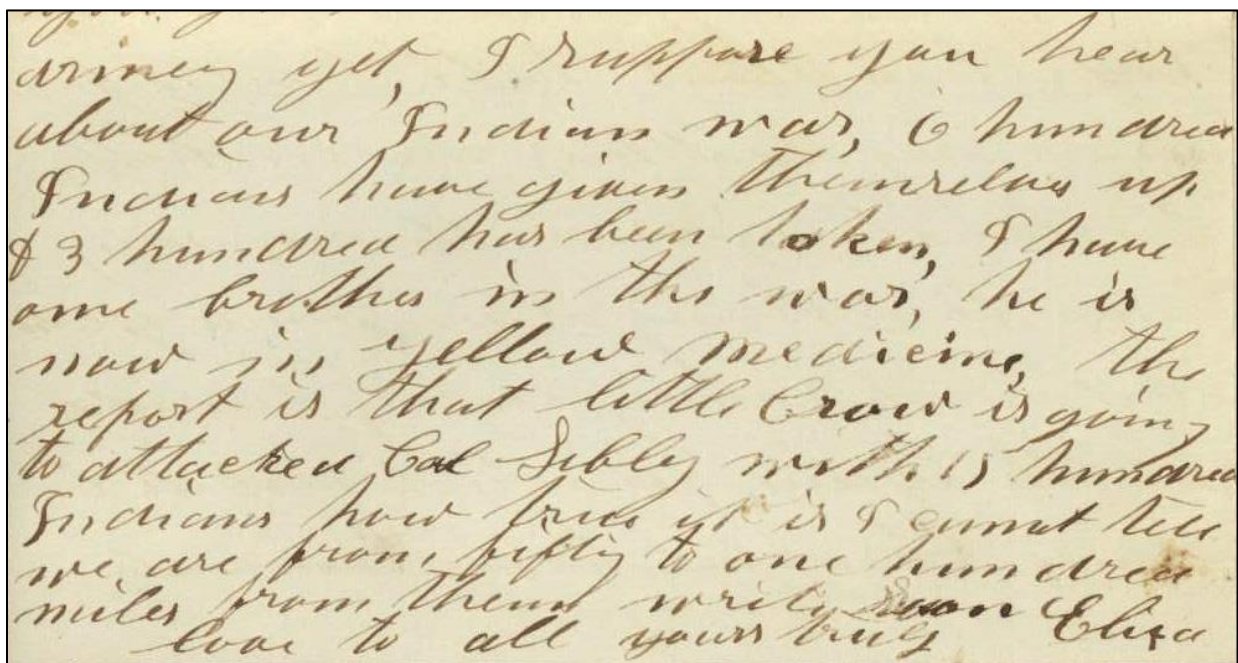 armey yet, I suppose you hear
about our Indian war, 6 hundred
Indians have given themselves up
& 3 hundred has been taken, I have
one brother in the war, he is
now in yellow medicine, the
report is that little Crow is going
to attacked Col Sibly with 15 hundred
Indians how true it is I cannot tell
we are from fifty to one hundred
miles from them write soon
love to all yours truly Eliza